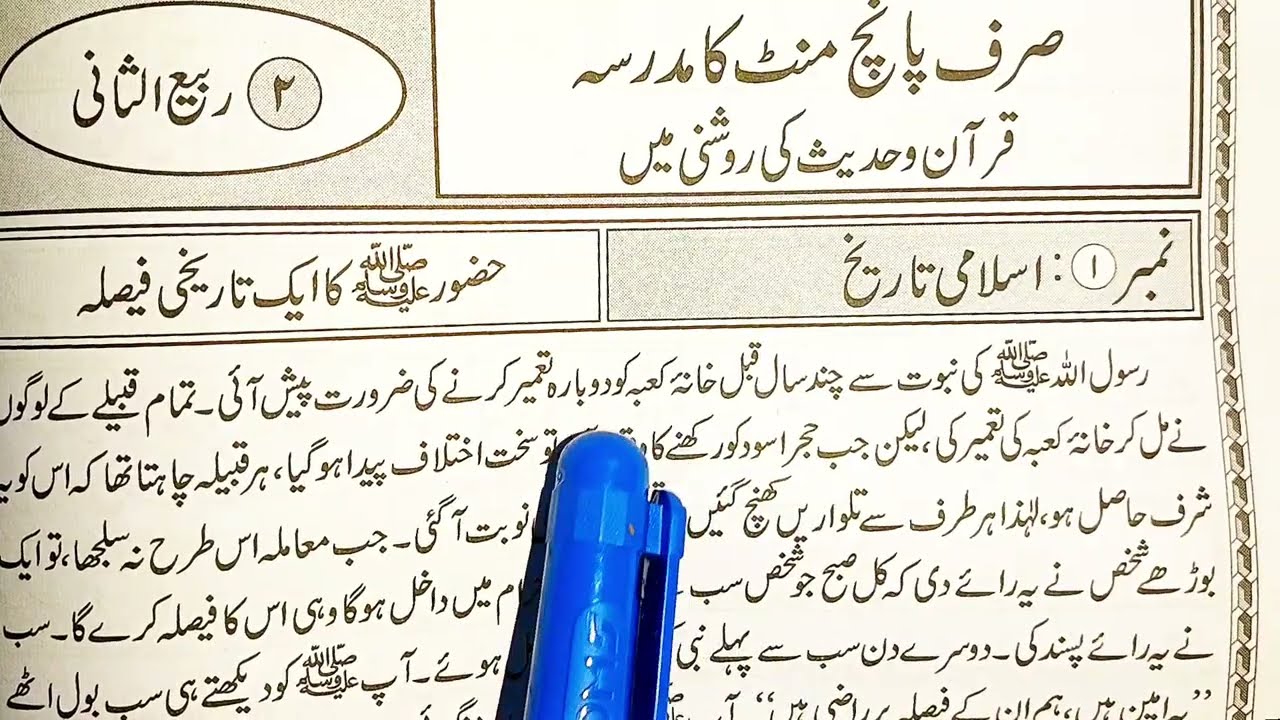 صرف پانچ منٹ کا مدرسہ
قرآن و حدیث کی روشنی میں
۲ ربیع الثانی
نمبر ۱ : اسلامی تاریخ
حضور ﷺ کا ایک تاریخی فیصلہ
رسول اللہ ﷺ کی نبوت سے چند سال قبل خانۂ کعبہ کو دوبارہ تعمیر کرنے کی ضرورت پیش آئی۔ تمام قبیلے کے لوگوں
نے مل کر خانۂ کعبہ کی تعمیر کی، لیکن جب حجر اسود کو رکھنے کا تو سخت اختلاف پیدا ہو گیا، ہر قبیلہ چاہتا تھا کہ اس کو یہ
شرف حاصل ہو، لہٰذا ہر طرف سے تلواریں کھنچ گئیں نوبت آ گئی۔ جب معاملہ اس طرح نہ سلجھا، تو ایک
بوڑھے شخص نے یہ رائے دی کہ کل صبح جو شخص سب میں داخل ہوگا وہی اس کا فیصلہ کرے گا۔ سب
نے یہ رائے پسند کی۔ دوسرے دن سب سے پہلے نبی ہوئے۔ آپ ﷺ کو دیکھتے ہی سب بول اٹھے
”یہ امین ہیں، ہم ان کے فیصلہ پر راضی ہیں“ آپ